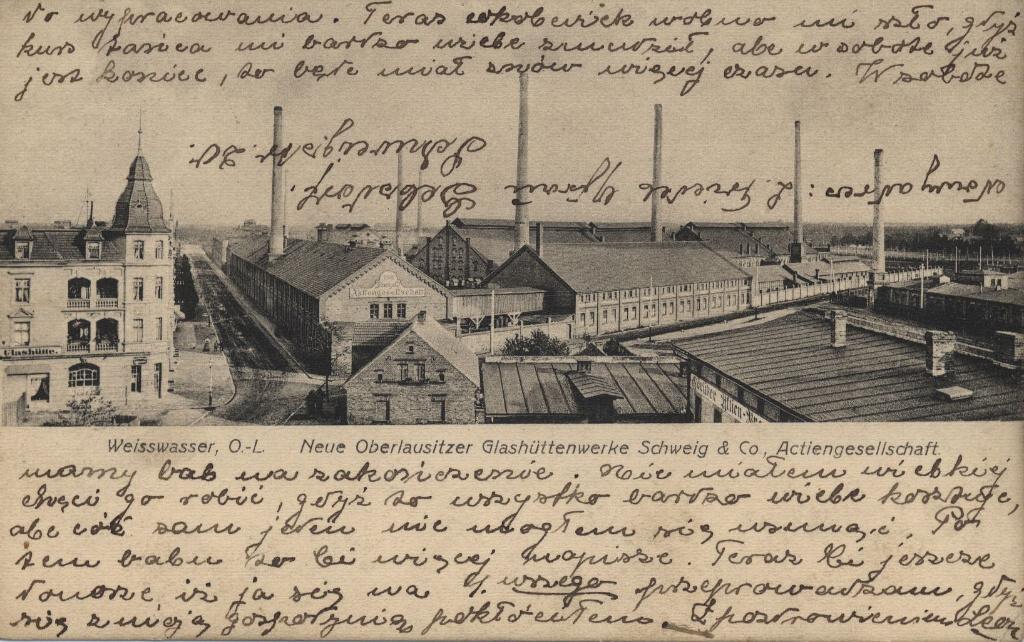 do wypracowania. Teraz cokolwiek wolno mi szło, gdyż
kurs tańca mi bardzo wiele zmudził, ale w sobotę już
jest koniec, to będę miał znów więcej czasu. W sobotę
Nowy adres: L.
Schweigstr. 20.
Actiengesellschaft
Glashütte.
Weisswasser, O.-L. Neue Oberlausitzer Glashüttenwerke Schweig & Co, Actiengesellschaft.
mamy bal na zakończenie. Nie miałem wielkiej
chęci go robić, gdyż to wszystko bardzo wiele kosztuje,
ale cóż sam jeden nie mogłem się usunąć. Po
tem balu to Ci więcej napiszę. Teraz Ci jeszcze
donoszę, iż ja się na 1. wszego przeprowadzam, gdyż
się z moją gospodynią pokłóciłem. Z pozdrowieniem Leon